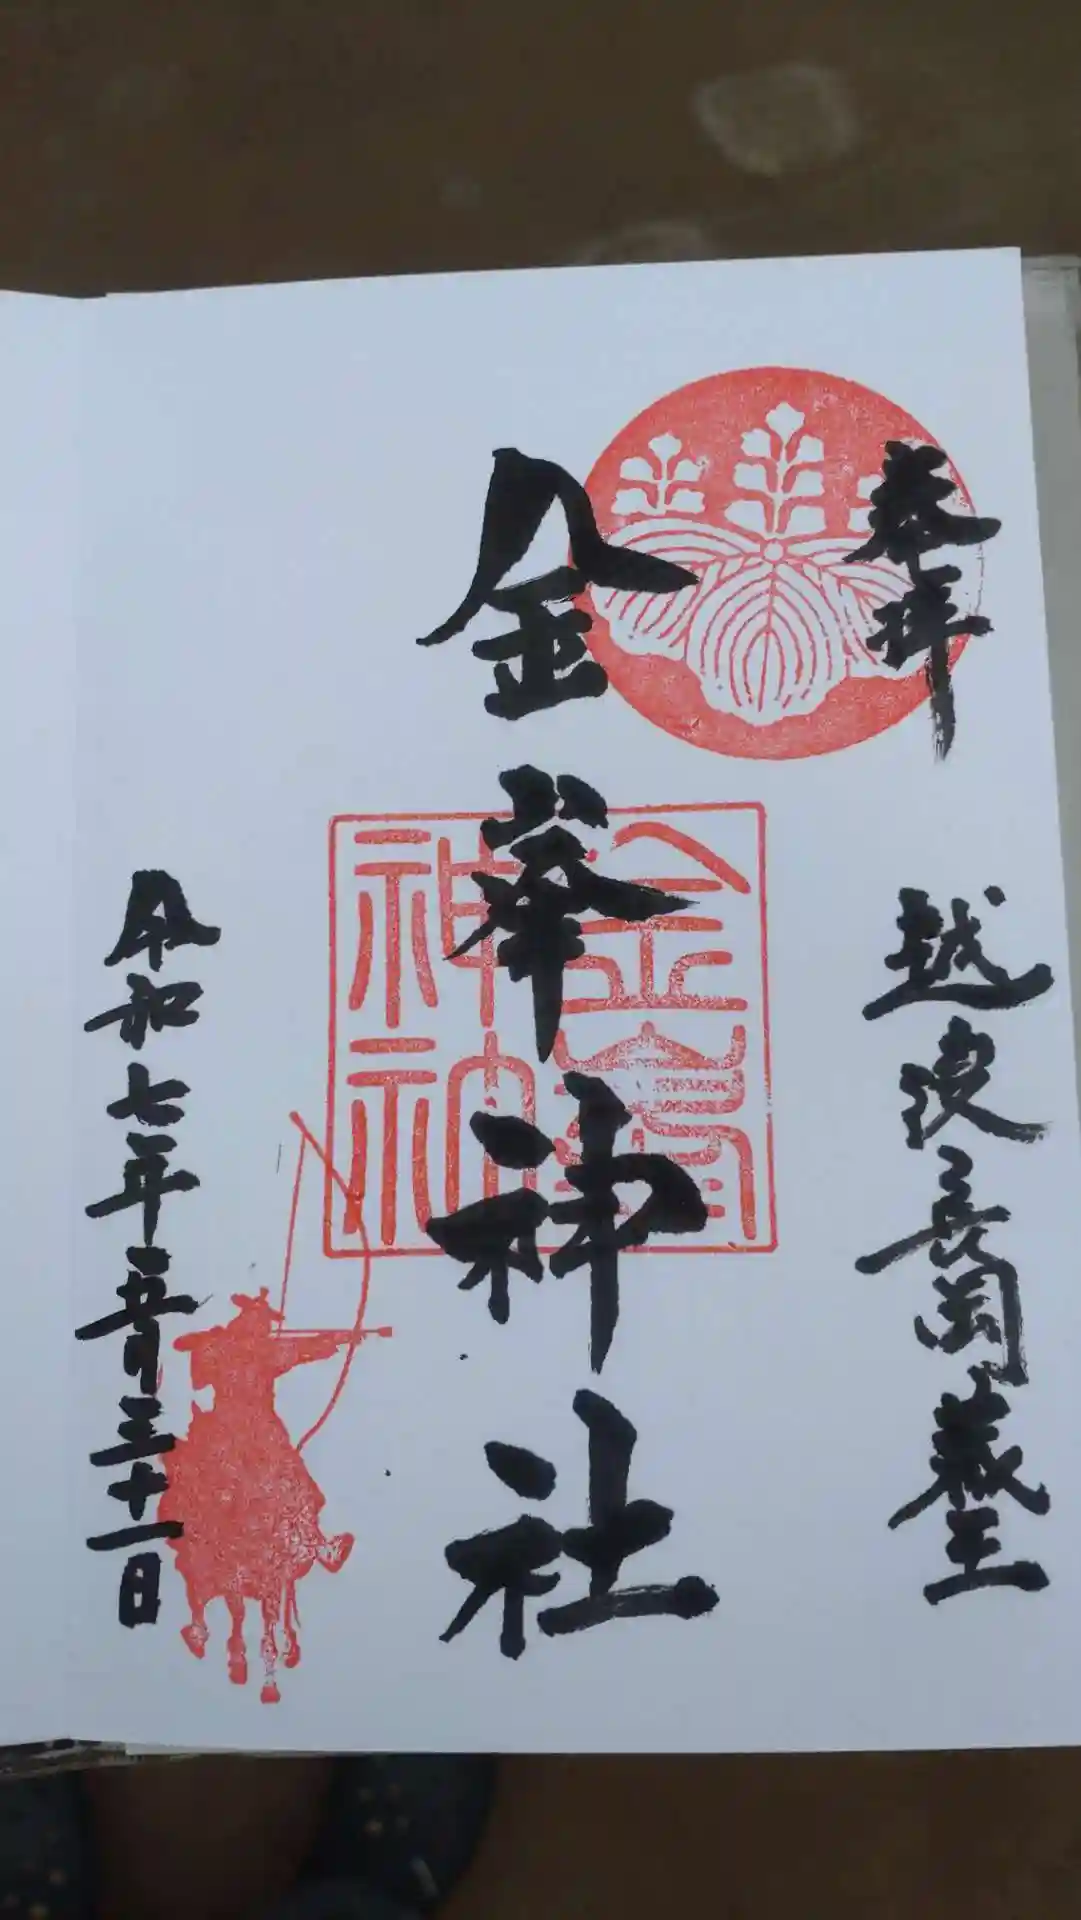 奉拝
越後長岡蔵王
金峯神社
金峯神社
令和七年五月三十一日